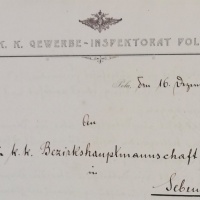 K. K. GEWERBE-INSPEKTORAT POL
den 16. Dezem
An
k. k. Bezirkshauptmannschaft
in
Seben